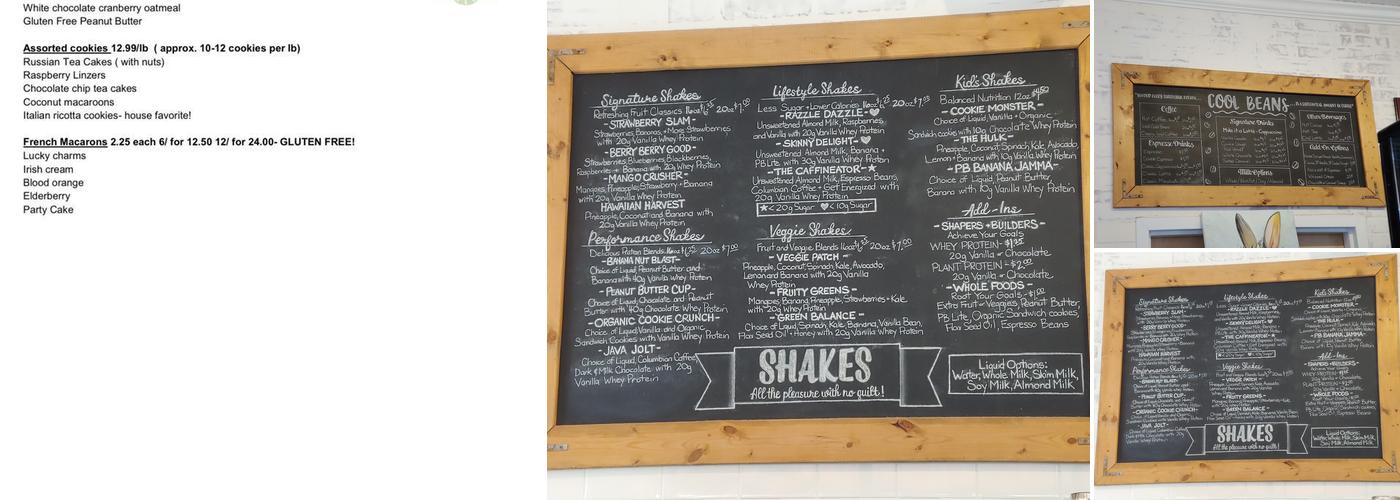 White chocolate cranberry oatmeal
Gluten Free Peanut Butter
Assorted cookies 12.99/lb ( approx. 10-12 cookies per lb)
Russian Tea Cakes ( with nuts)
Raspberry Linzers
Chocolate chip tea cakes
Coconut macaroons
Italian ricotta cookies- house favorite!
French Macarons 2.25 each 6/ for 12.50 12/ for 24.00- GLUTEN FREE!
Lucky charms
Irish cream
Blood orange
Elderberry
Party Cake
Signature Shakes
Refreshing Fruit Classics 20oz $7.00
-STRAWBERRY SLAM-
Strawberries, Bananas, + More Strawberries
with 20g Vanilla Whey Protein
-BERRY BERRY GOOD-
Strawberries, Blueberries, Blackberries,
Raspberries + Banana with 20g Whey Protein
-MANGO CRUSHER-
Mangies, Pineapple, Strawberry + Banana
with 20g Vanilla Whey Protein
HAWAIIAN HARVEST
Pineapple, Coconut and Banana with
20g Vanilla Whey Protein
Performance Shakes
Delicious Protein Blends 20oz $7.00
-BANANA NUT BLAST-
Choice of Liquid, Peanut Butter and
Banana with 40g Vanilla Whey Protein
-PEANUT BUTTER CUP-
Choice of Liquid, Chocolate and Peanut
Butter with 40g Chocolate Whey Protein
-ORGANIC COOKIE CRUNCH-
Choice of Liquid, Vanilla and Organic
Sandwich Cookies with Vanilla Whey Protein
-JAVA JOLT-
Choice of Liquid, Columbian Coffee,
Dark + Milk Chocolate with 20g
Vanilla Whey Protein
Lifestyle Shakes
Less Sugar + Lower Calories 20oz $7.00
-RAZZLE DAZZLE-♥
Unsweetened Almond Milk, Raspberries
and Vanilla with 20g Vanilla Whey Protein
-SKINNY DELIGHT-♥
Unsweetened Almond Milk, Banana +
PB Lite, with 30g Vanilla Whey Protein
-THE CAFFINATOR-★
Unsweetened Almond Milk, Espresso Beans,
Columbian Coffee + Get Energized with
20g Vanilla Whey Protein
★<20g Sugar ♥<10g Sugar
Veggie Shakes
Fruit and Veggie Blends 20oz $7.00
-VEGGIE PATCH-
Pineapple, Coconut, Spinach, Kale, Avocado,
Lemon and Banana with 20g Vanilla
Whey Protein
-FRUITY GREENS-
Mangies, Banana, Pineapple, Strawberries + Kale,
with 20g Vanilla Whey Protein
-GREEN BALANCE-
Choice of Liquid, Spinach, Kale, Banana, Vanilla Bean,
Flax Seed Oil + Honey with 20g Vanilla Whey Protein
Kid's Shakes
Balanced Nutrition 12oz $4.50
-COOKIE MONSTER-
Choice of Liquid, Vanilla + Organic
Sandwich cookies with 10g Chocolate Whey Protein
-THE HULK-
Pineapple, Coconut, Spinach, Kale, Avocado
Lemon + Banana with 10g Vanilla Whey Protein
-PB BANANA JAMMA-
Choice of Liquid, Peanut Butter,
Banana with 10g Vanilla Whey Protein
Add-Ins
-SHAPERS + BUILDERS-
Achieve Your Goals
WHEY PROTEIN-
20g Vanilla or Chocolate
PLANT PROTEIN-$2.00
20g Vanilla or Chocolate
-WHOLE FOODS-
Root Your Goals-$1.00
Extra Fruit + Veggies, Peanut Butter,
PB Lite, Organic Sandwich cookies,
Flax Seed Oil, Espresso Beans
SHAKES
All the pleasure with no guilt!
Liquid Options:
Water, Whole Milk, Skim Milk,
Soy Milk, Almond Milk
COOL BEANS
Coffee
Espresso Drinks
Signature Drinks
Milk Options
Other Beverages
Add-On Options
Signature Shakes
-STRAWBERRY SLAM-
-BERRY BERRY GOOD-
-MANGO CRUSHER-
HAWAIIAN HARVEST
Performance Shakes
-BANANA NUT BLAST-
-PEANUT BUTTER CUP-
-ORGANIC COOKIE CRUNCH-
-JAVA JOLT-
Lifestyle Shakes
-RAZZLE DAZZLE-
-SKINNY DELIGHT-
-THE CAFFINATOR-
Veggie Shakes
-VEGGIE PATCH-
-FRUITY GREENS-
-GREEN BALANCE-
Kid's Shakes
-COOKIE MONSTER-
-THE HULK-
-PB BANANA JAMMA-
Add-Ins
-SHAPERS + BUILDERS-
-WHOLE FOODS-
SHAKES
All the pleasure with no guilt!
Liquid Options:
Water, Whole Milk, Skim Milk,
Soy Milk, Almond Milk